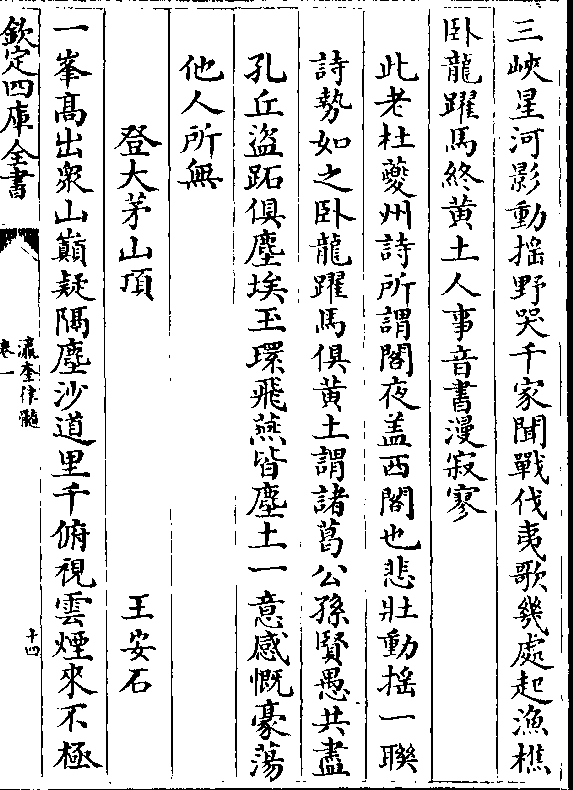 三峽星河影動揺野哭千家聞戰伐夷歌幾處起漁樵
卧龍躍馬終黄土人事音書漫寂寥
此老杜夔州詩所謂閣夜盖西閣也悲壯動揺一聨
詩勢如之卧龍躍馬俱黄土謂諸葛公孫賢愚共盡
孔丘盜跖俱塵埃玉環飛燕皆塵土一意感慨豪蕩
他人所無
登大茅山頂 王安石
一峯髙出衆山巔疑隔塵沙道里千俯視雲煙來不極
欽定四庫全書
瀛奎律髓
卷一
十四